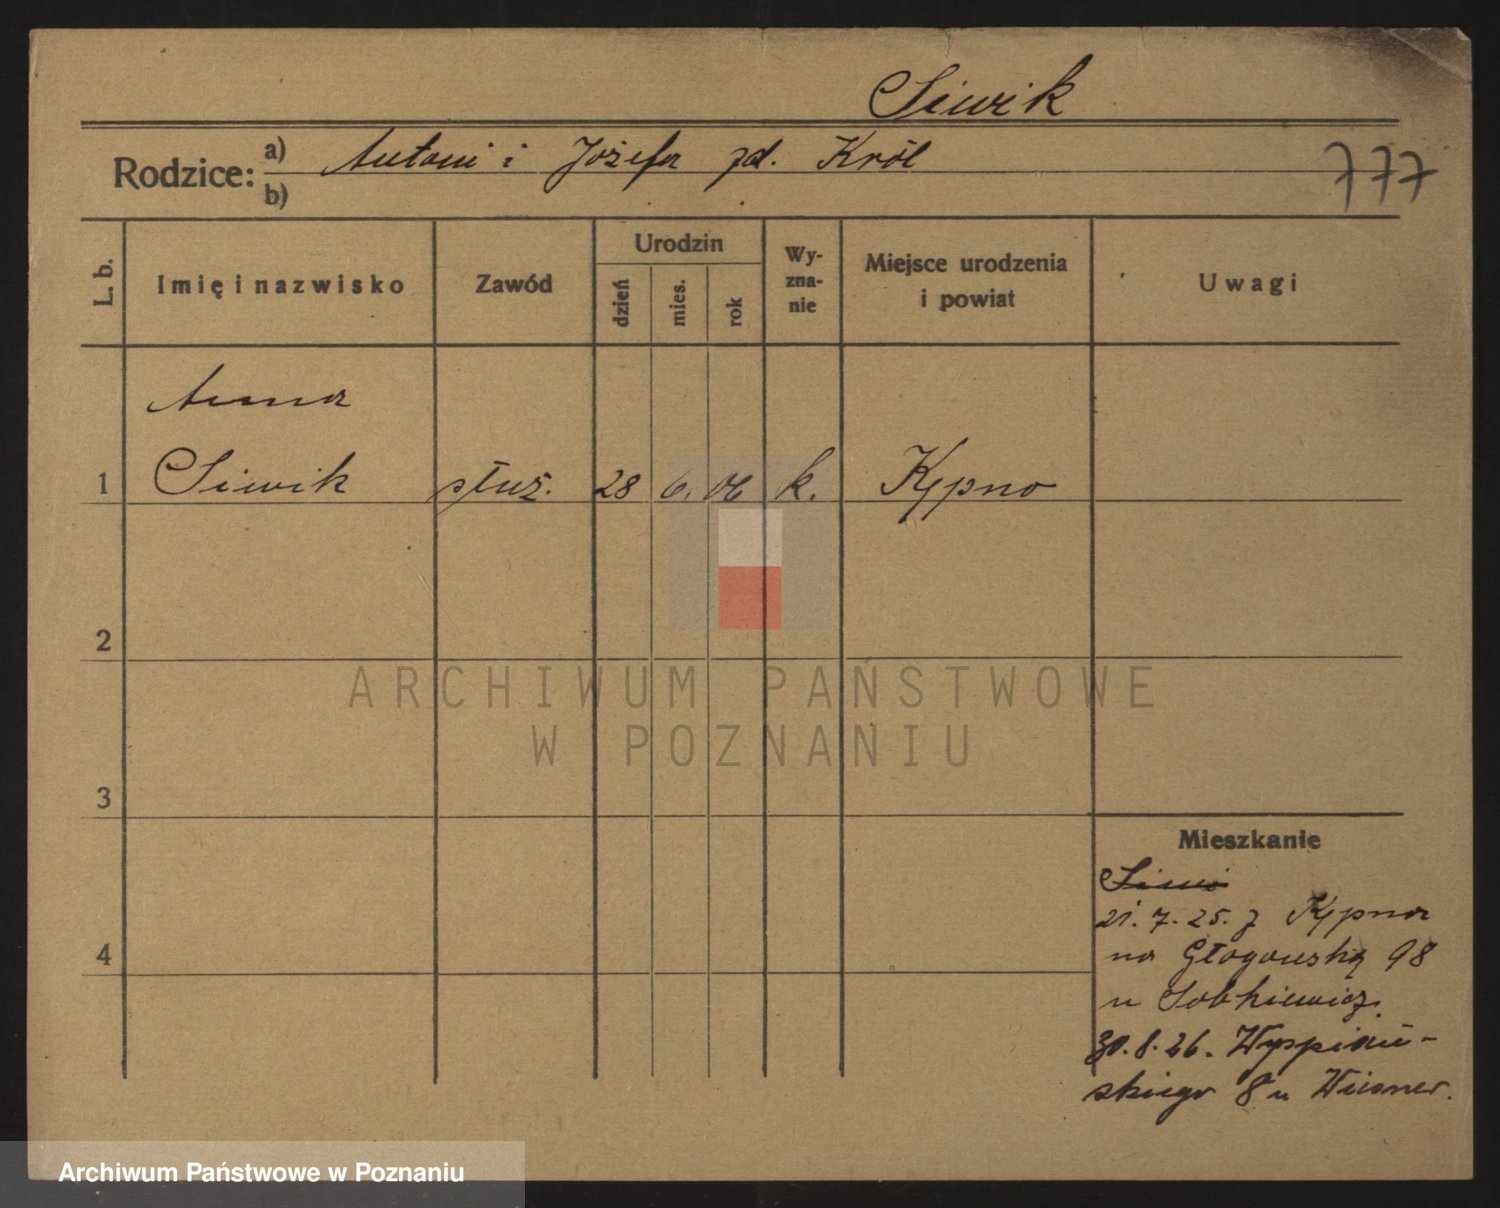 Siwik
Rodzice: a) Antoni i Józefa zd. Król
b)
777
L. b.
Imię i nazwisko
Zawód
Urodzin
dzień
mies.
rok
Wy-
zna-
nie
Miejsce urodzenia
i powiat
Uwagi
Anna
1 Siwik służ. 28 6. 06 k. Kępno
2
ARCHIWUM PAŃSTWOWE
W POZNANIU
3
Mieszkanie
21. 7. 25. z Kępna
4
na Głogowską 98
u Sobkiewicz.
30. 8. 26. Wyspiań-
skiego 8 u Wiesner.
Archiwum Państwowe w Poznaniu